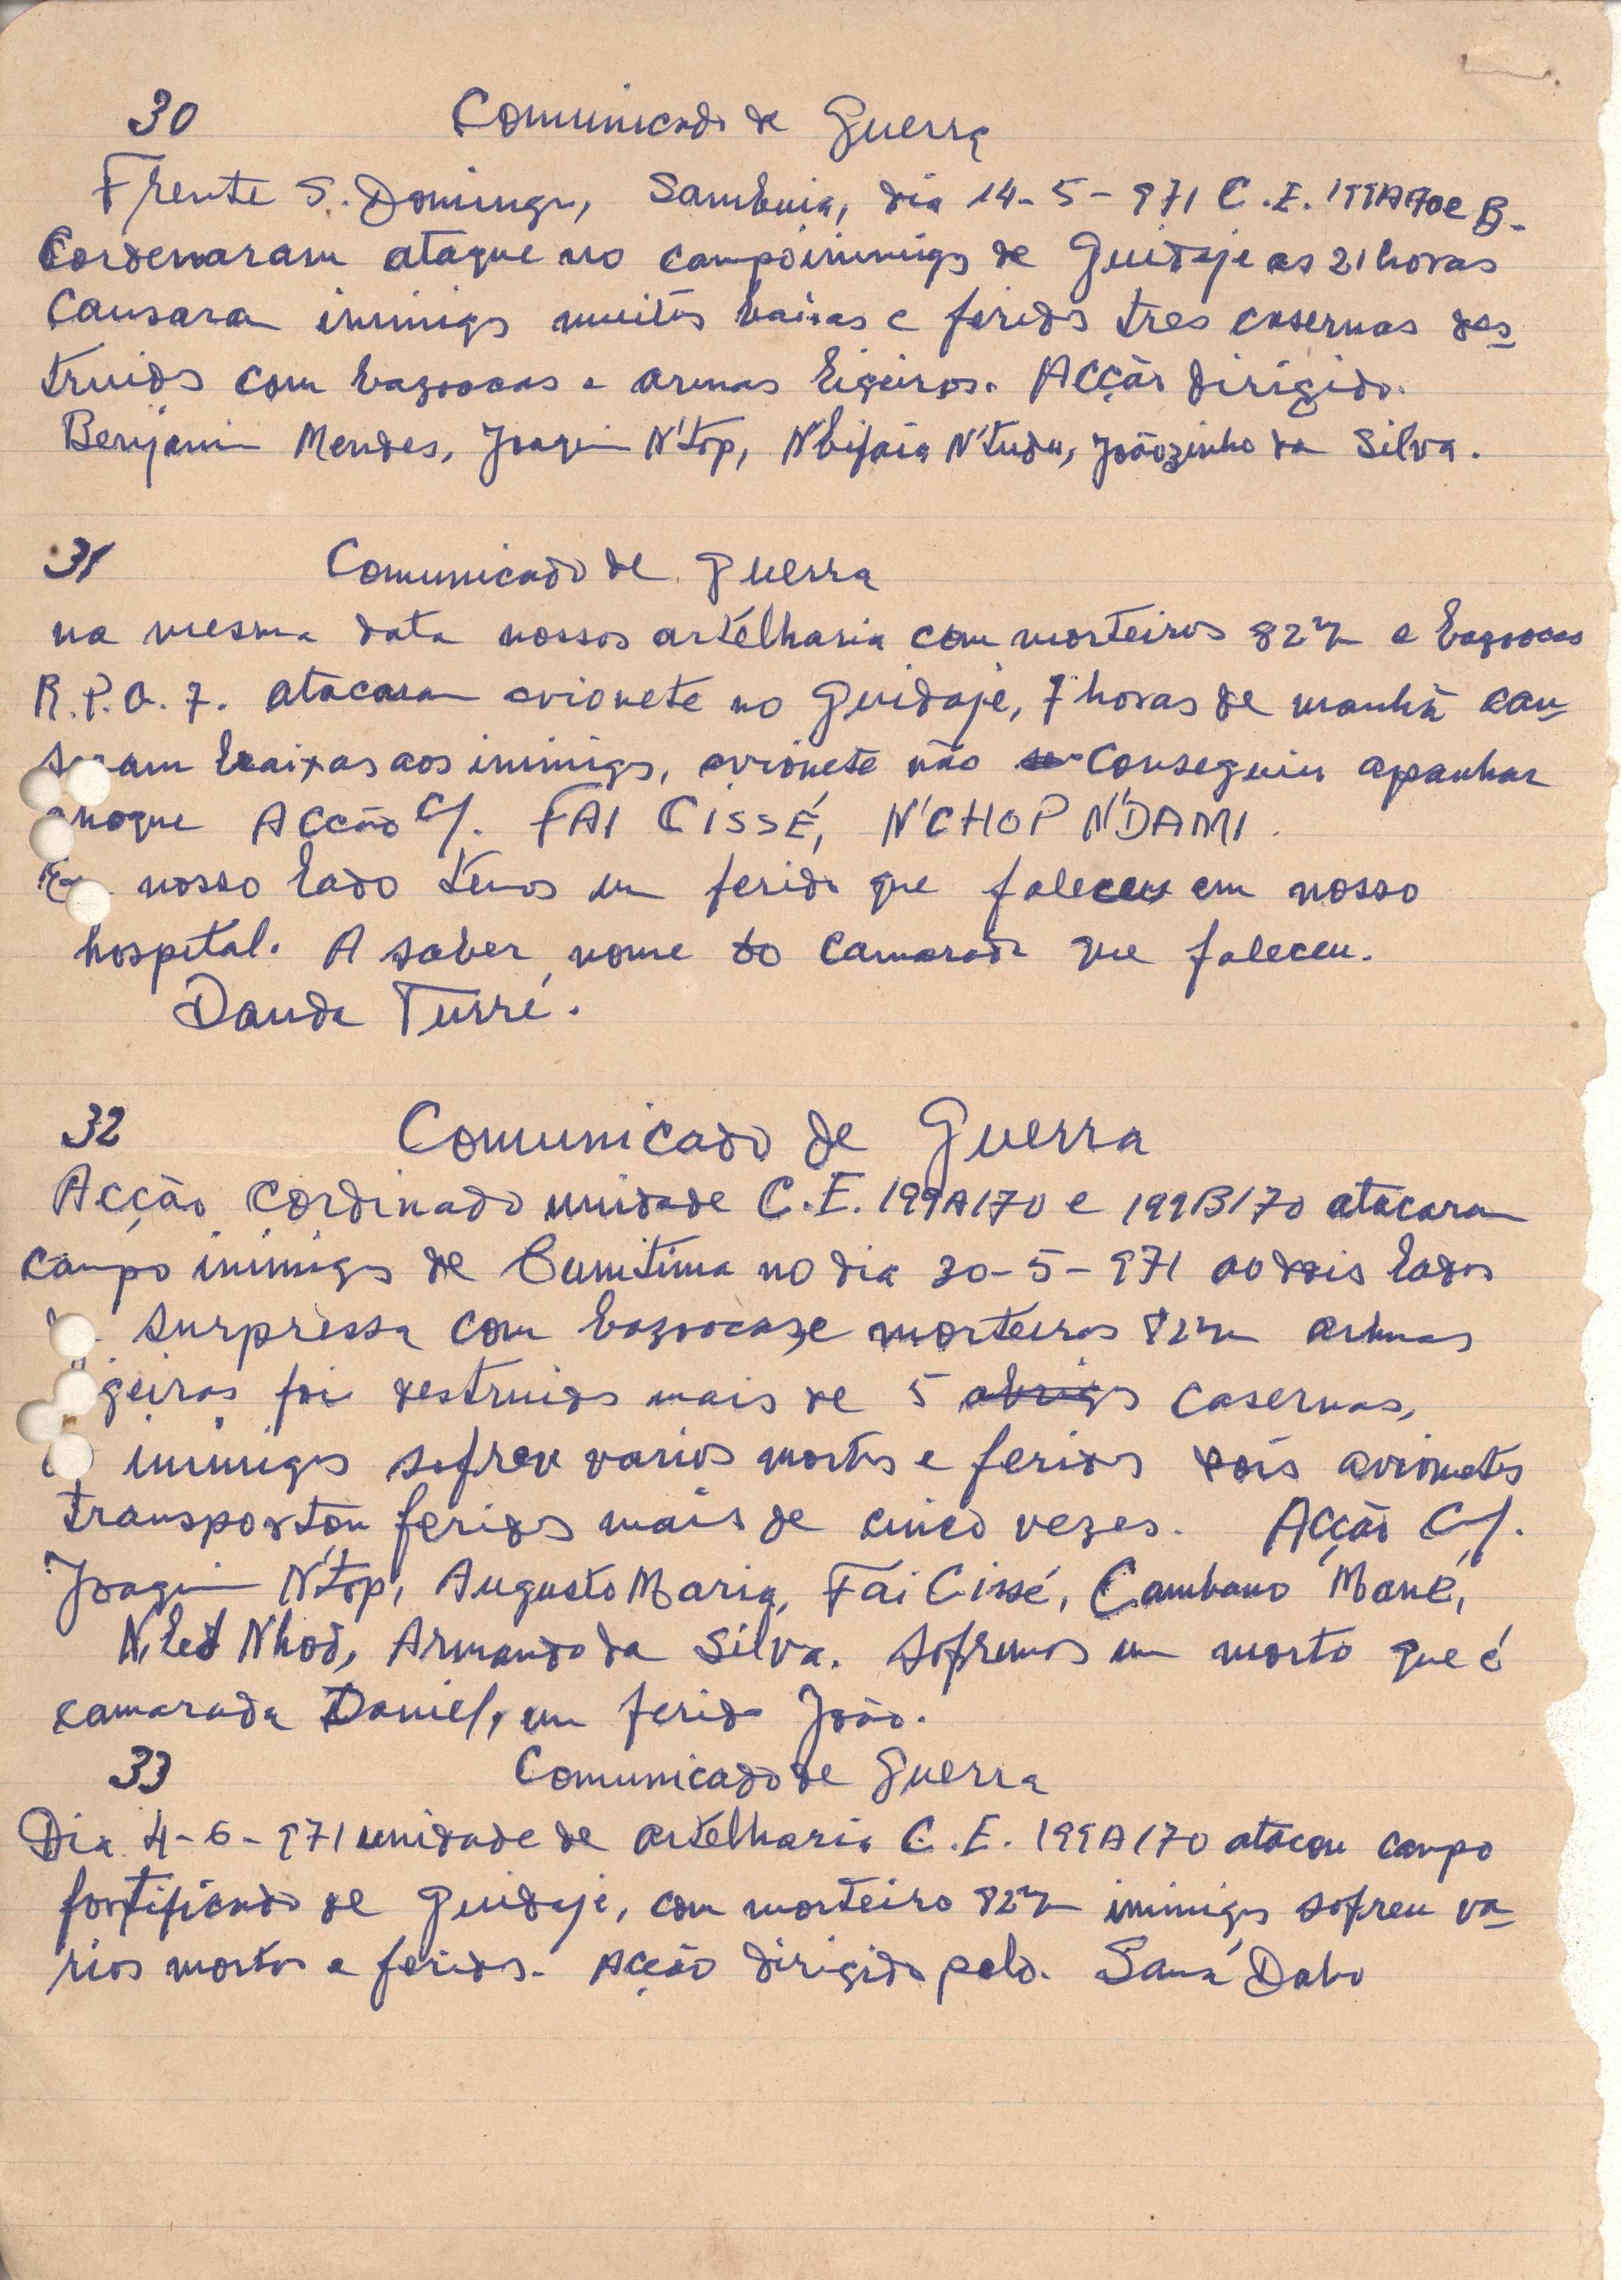 30 Comunicado de Guerra
Frente S. Domingo, Sambuia, dia 14-5-971 C.E. 199A70 e B.
Cordenaram ataque no campo inimigo de Guidaje as 21 horas
Causaram inimigo muitos baixas e ferido tres casernas des-
truido com bazoocas e armas ligeiros. Acção dirigido.
Benjamim Mendes, Joaquim N'top, N'bifaia N'tudu, Joãozinho da Silva.
31 Comunicado de Guerra
na mesma data nossos artelharia com morteiros 82m e bazoocas
R.P.G. 7. atacaram avionete no Guidaje, 7 horas de manhã cau-
saram baixas aos inimigo, avionete não conseguiu apanhar
Acção C/. FAI CISSÉ, N'CHOP N'DAMI.
nosso lado temos um ferido que faleceu em nosso
hospital. A saber nome do camarada que faleceu.
Dauda Turré.
32 Comunicado de Guerra
Acção cordinado unidade C.E. 199A/70 e 199B/70 atacaram
campo inimigo de Cumitima no dia 30-5-971 ao dois lados
surpressa com bazoocas e morteiros 82m armas
geiras foi destruido mais de 5 abrigo casernas,
inimigo sofreu varios mortos e feridos dois avionetes
transportou feridos mais de cinco vezes. Acção C/.
Joaquim N'top, Augusto Maria, Fai Cissé, Cambano Mané,
Armando da Silva. Sofremos um morto que é
camarada Daniel, um ferido João.
33 Comunicado de Guerra
Dia 4-6-971 unidade de artelharia C.E. 199A/70 atacou campo
fortificado de Guidaje, com morteiro 82m inimigo sofreu va-
rios mortos e feridos. Acção dirigido pelo. Saná Dabo